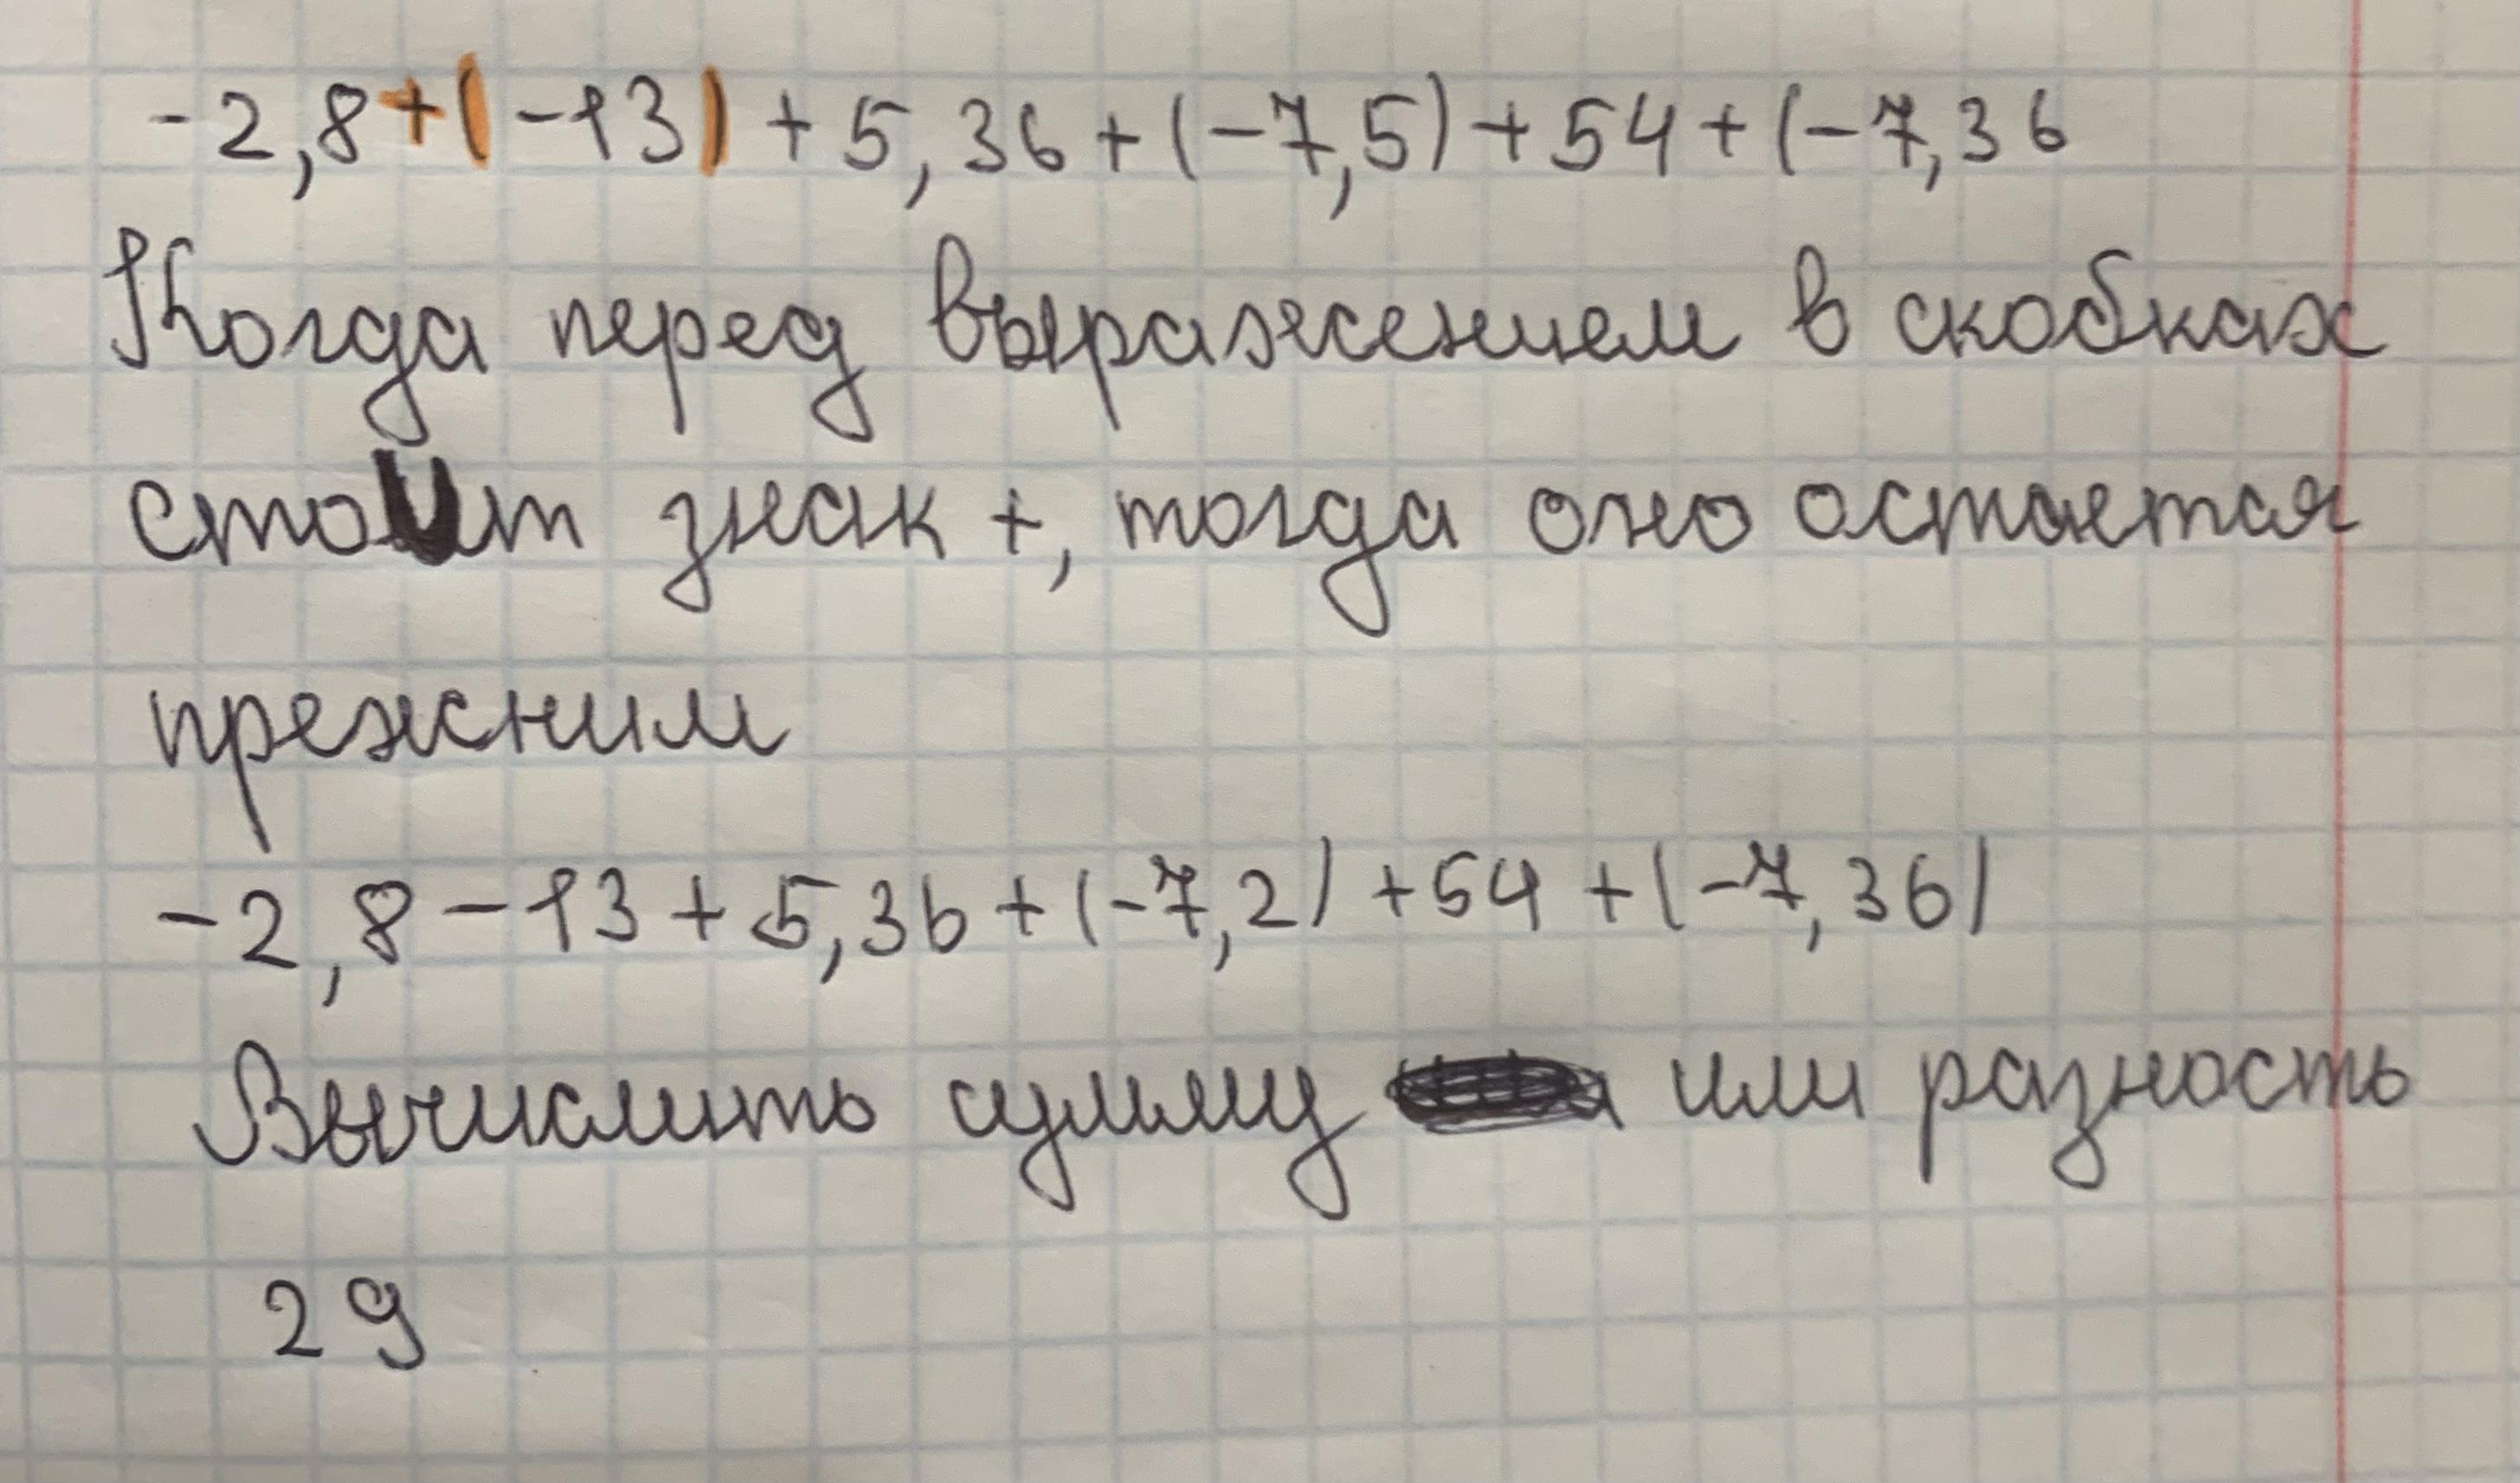 -2,8+(-13)+5,36+(-7,5)+54+(-7,36
Когда перед выражением в скобках
стоит знак +, тогда оно остается
прежним
-2,8-13+5,36+(-7,2)+54+(-7,36)
Вычислить сумму или разность
29